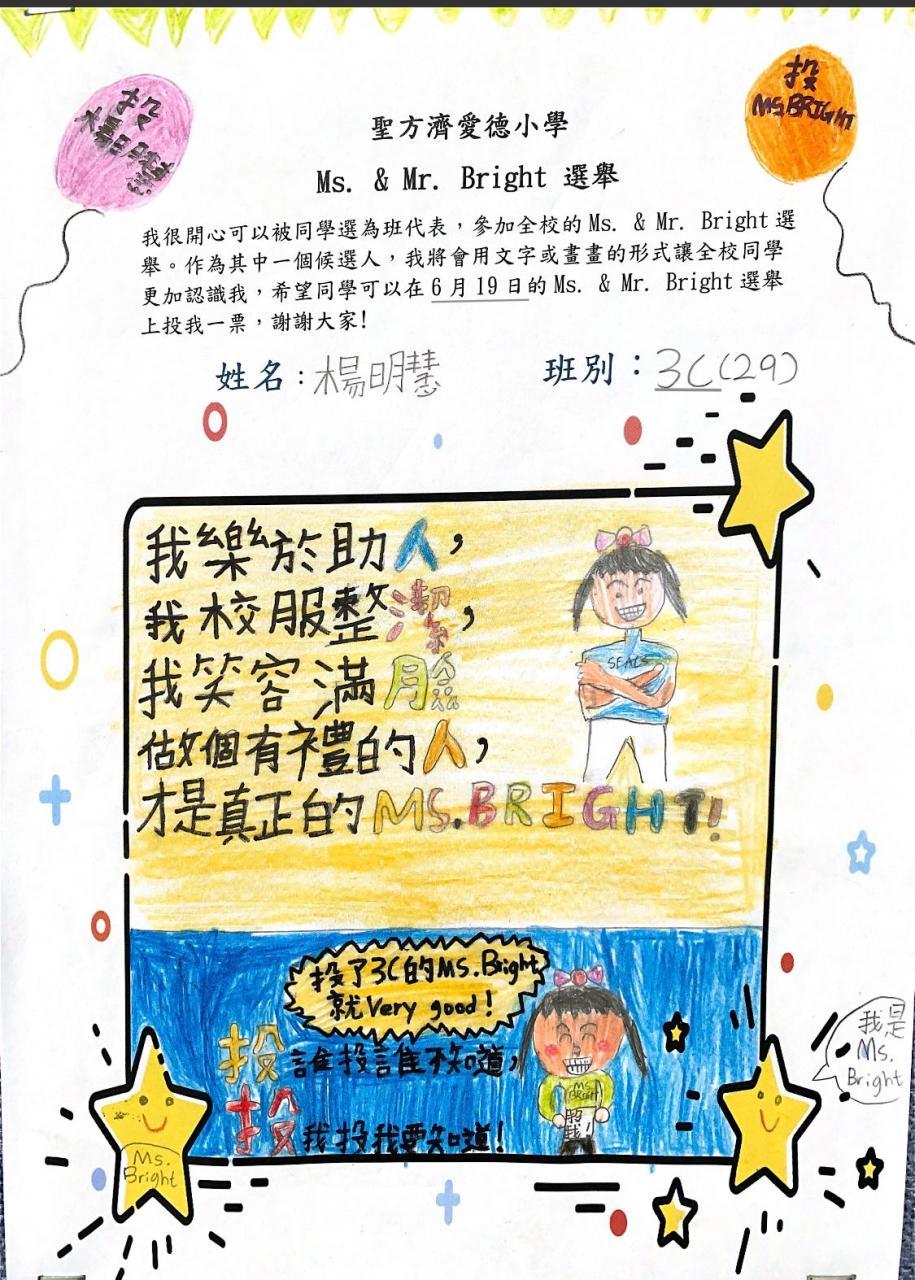 投
楊明慧
投
MS.BRIGHT
聖方濟愛德小學
Ms. & Mr. Bright 選舉
我很開心可以被同學選為班代表，參加全校的 Ms. & Mr. Bright 選
舉。作為其中一個候選人，我將會用文字或畫畫的形式讓全校同學
更加認識我，希望同學可以在 6 月 19 日的 Ms. & Mr. Bright 選舉
上投我一票，謝謝大家!
姓名：楊明慧 班別：3C(29)
我樂於助人，
我校服整潔，
我笑容滿臉
做個有禮的人，
才是真正的MS.BRIGHT!
SEALS
投了3C的MS.Bright
就Very good!
投誰投誰不知道，
投我投我要知道!
Ms.
BRIGHT
我是
Ms.
Bright
Ms.
Bright